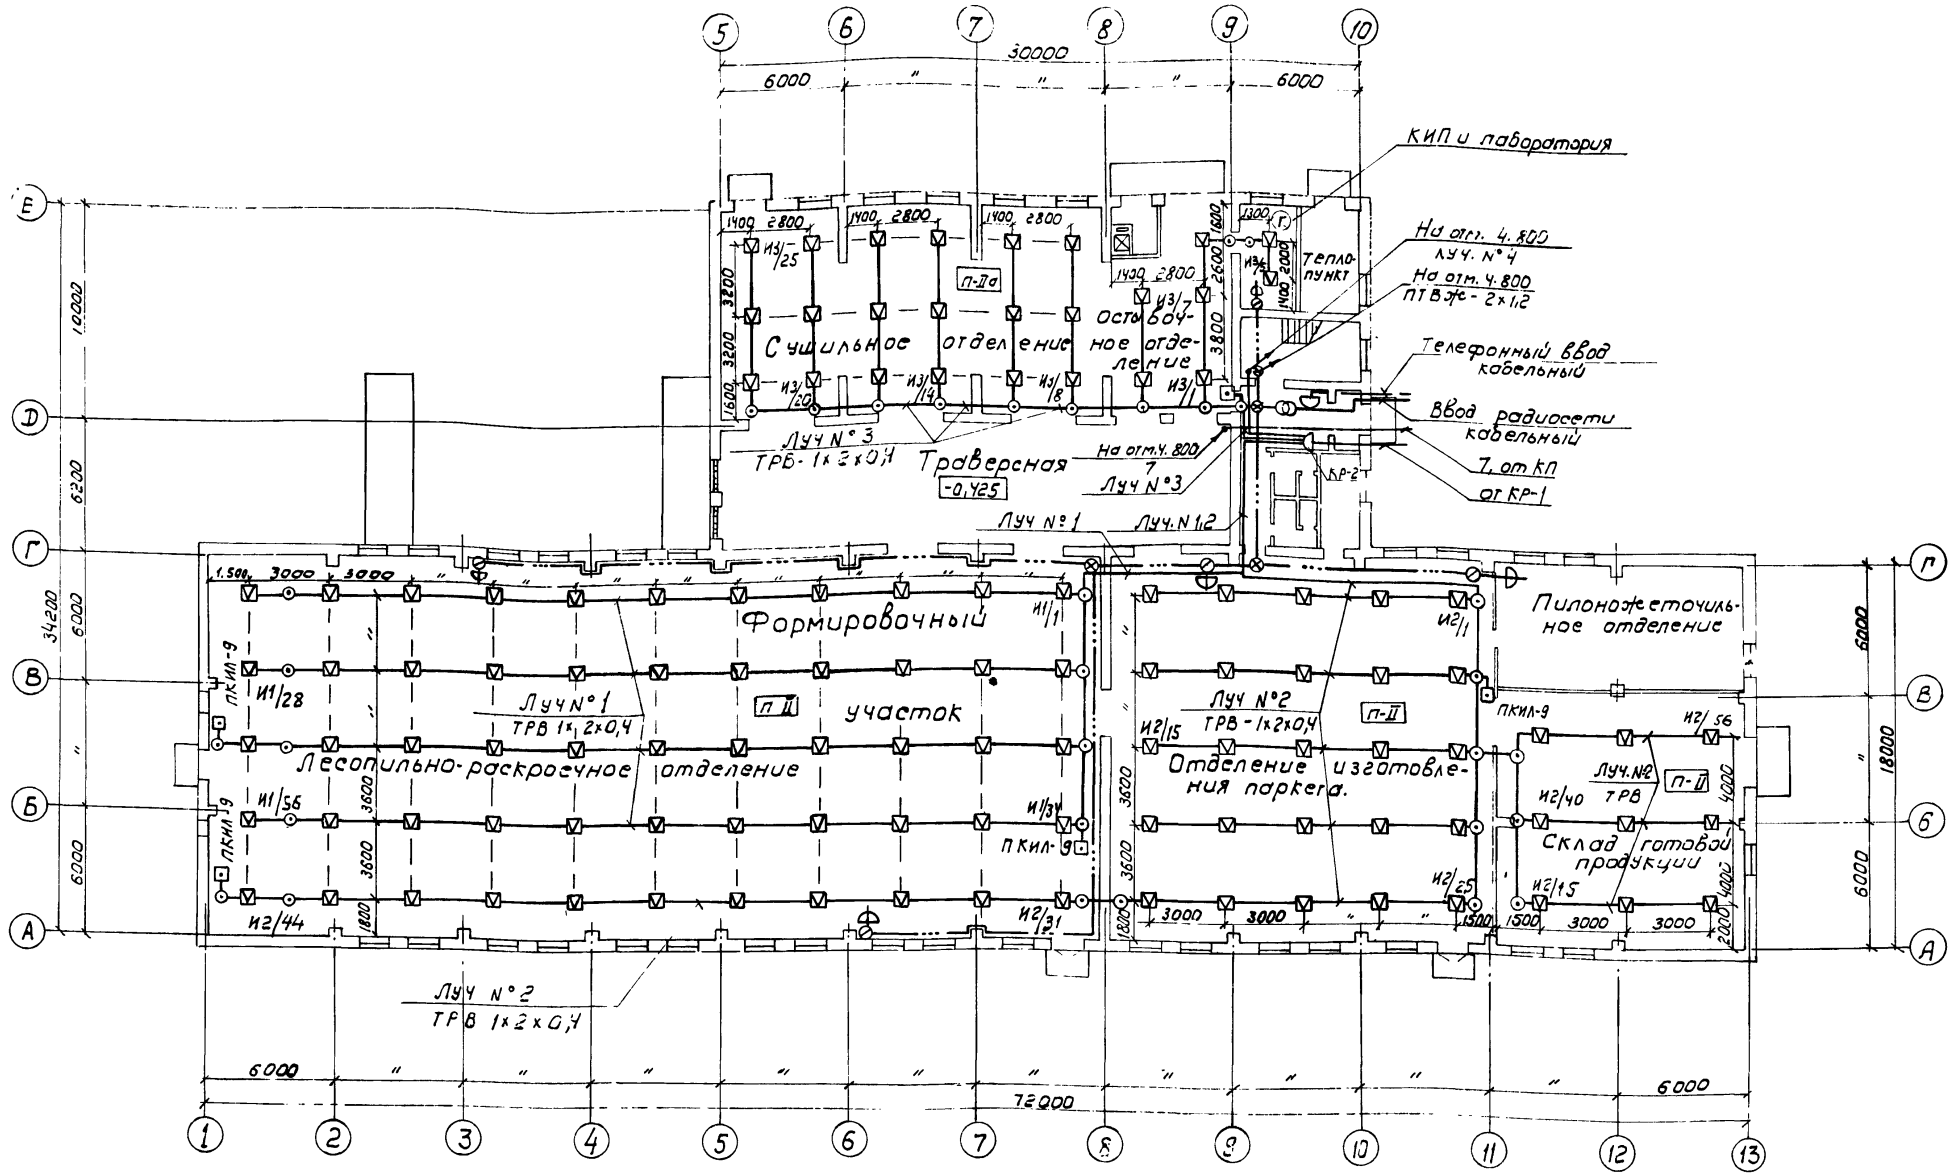 5 6 7 8 9 10
30000
6000 " " " 6000
КИП и лаборатория
Е
1400 2800 1400 2800 1400 2800
1600 1300 Г
И3/25
На отм. 4.800
ЛУЧ. N°4
п-IIа
2600
И3/5
2000
ТЕПЛО-
ПУНКТ
На отм. 4.800
ПТВЖ-2х1,2
1400 2800
1400
10000
3200
И3/7
3200
Сушильное отделение
Остывоч-
ное отде-
ление
3800
Телефонный ввод
кабельный
1600
И3/20 И3/14 И3/8 И3/1
Д
Ввод радиосети
кабельный
ЛУЧ N°3
ТРВ-1х2х0,4
Траверсная
-0,425
На отм. 4.800
7
ЛУЧ N°3
КР-2
7, от КП
от КР-1
6200
ЛУЧ N°1
ЛУЧ. N1,2
Г Г
34200
6000
1.500 3000 3000 " " " " " " " "
Формировочный
И1/1
И2/1
Пилоножеточиль-
ное отделение
6000
ПКИЛ-9
В В
И1/28
ЛУЧ N°1
ТРВ 1х2х0,4
п II
участок
ЛУЧ N°2
ТРВ-1х2х0,4
п-II
ПКИЛ-9
И2/15
И2/56
18000
Лесопильно-раскроечное отделение
Отделение изготовле-
ния паркета.
ЛУЧ. N2
ТРВ
п-II
4000
3600 3600
Б Б
И1/56
ПКИЛ 9
И1/34
ПКИЛ-9
И2/40
Склад готовой
продукции
6000
3600 3600
И2/25
И2/15
4000
6000
И2/44
1800
И2/31
1800
3000 3000 " " 1500 1500 3000 3000
2000
А А
ЛУЧ N°2
ТРВ 1х2х0,4
6000 " " " " " " " " " " 6000
72000
1 2 3 4 5 6 7 8 9 10 11 12 13